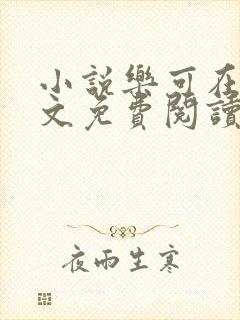 小說樂可在
文免費閱讀
夜雨生寒